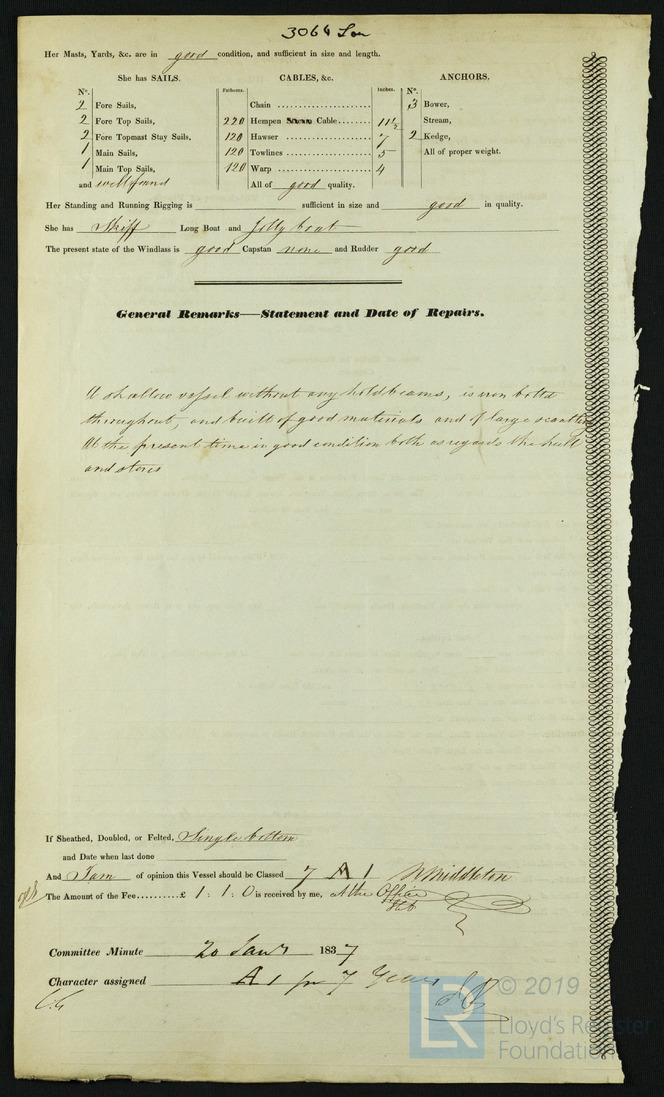 3064 Lon
Her Masts, Yards, &c. are in good condition, and sufficient in size and length.
She has SAILS. CABLES, &c. ANCHORS.
No. Fathoms. Inches. No.
2 Fore Sails, Chain .................... 3 Bower,
2 Fore Top Sails, 220 Hempen Cable........ 11½ Stream,
2 Fore Topmast Stay Sails, 120 Hawser .................... 7 2 Kedge,
1 Main Sails, 120 Towlines .................... 5 All of proper weight.
1 Main Top Sails, 120 Warp .................... 4
and well found All of good quality.
Her Standing and Running Rigging is sufficient in size and good in quality.
She has Skiff Long Boat and Jolly boat
The present state of the Windlass is good Capstan none and Rudder good
General Remarks—Statement and Date of Repairs.
A shallow vessel without any hold beams, is iron bolted
throughout, and built of good materials and of large scantling
At the present time in good condition both as regards the hull
and stores
If Sheathed, Doubled, or Felted, Single bottom
and Date when last done
And I am of opinion this Vessel should be Classed 7 A 1 Middleton
The Amount of the Fee...........£ 1 : 1 : 0 is received by me, At the Office
Committee Minute 20 Jany 1837
Character assigned A 1 for 7 Years
© 2019
LR
Lloyd's Register
Foundation